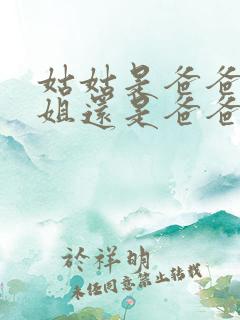 姑姑是爸爸
姐還是爸爸
於祥明
未经同意禁止转载